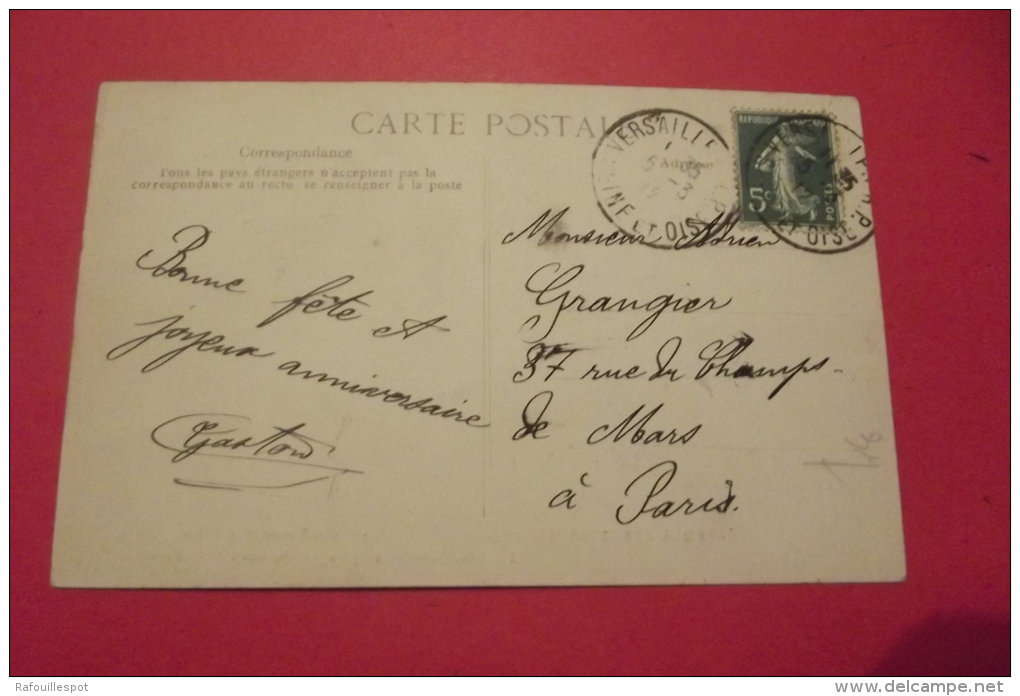 CARTE POSTALE
Correspondance
Tous les pays étrangers n'acceptent pas la
correspondance au recto se renseigner à la poste
Bonne fête et
joyeux anniversaire
Gaston
Adresse
Monsieur Adrien
Grangier
37 rue du Champs-
de Mars
à Paris.
VERSAILLES
SEINE ET OISE
5c
POSTES
ET OISE
Rafouillespot
www.delcampe.net